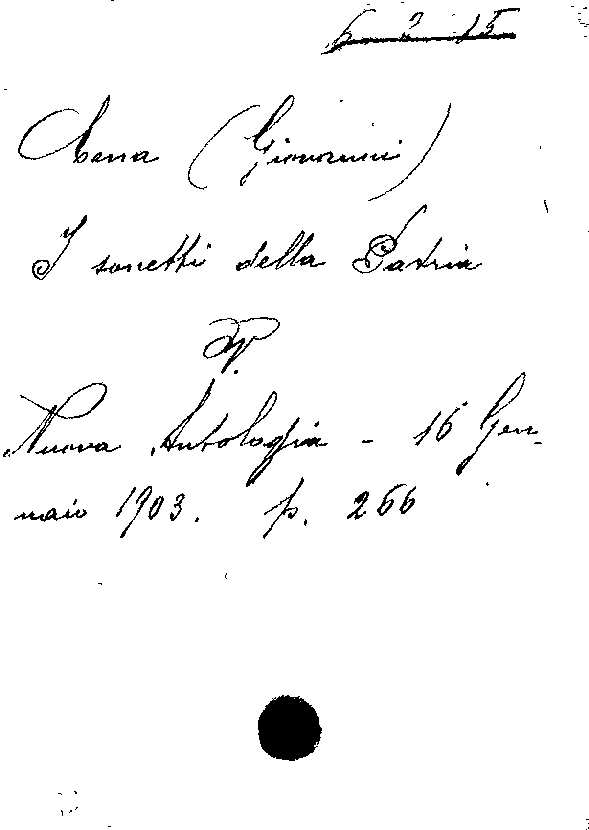 6 2 15
Cena (Giovanni)
I sonetti della Patria
Nuova Antologia - 16 Gen-
naio 1903. p. 266